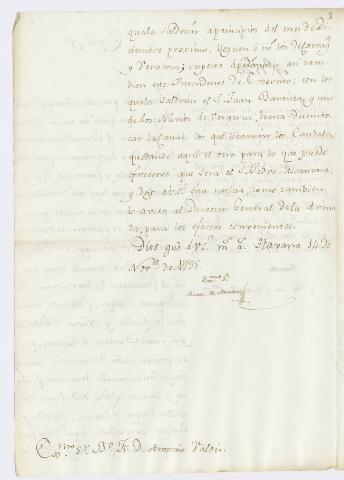 quales saldràn a principios del mes de Di-
ciembre proximo, lleguen ó nó los de Cartag.ª
y Veracruz; respecto
bien este Intendente de Exercito; con los
quales saldràn el S. Juan Bautista, y uno
de los Navios de Veracruz, hasta desembo-
car la Canal, los que llevaràn los Caudales,
quedando aqui el otro para lo que puede
ofrecerse, que serà el S. Pedro Alcantara;
y doy à V.E. esta noticia, como tambien
lo aviso al Director General de la Arma-
da, para los efectos convenientes.
Dios gue à V.E. m.s a.s Havana 14 de
Nov.re de 1795.
Exmo S.or
Exmo S.or B.o Fr. D. Antonio Valdés.